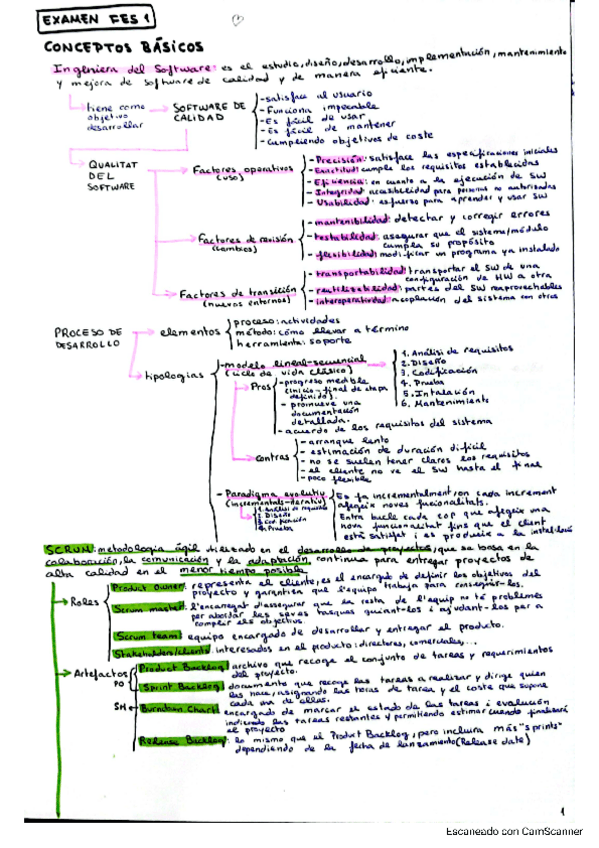 EXAMEN FES 1
CONCEPTOS BÁSICOS
Ingeniera del Software: es el estudio, diseño, desarrollo, implementación, mantenimiento
y mejora de software de calidad y de manera eficiente.
tiene como objetivo desarrollar
SOFTWARE DE CALIDAD
-satisface al usuario
-Funciona impecable
-Es fácil de usar
-Es fácil de mantener
-Cumpliendo objetivos de coste
QUALITAT DEL SOFTWARE
Factores operativos (uso)
-Precisión: satisface las especificaciones iniciales
-Exactitud: cumple los requisitos establecidos
-Eficiencia: en cuanto a la ejecución de SW
-Integridad: accesibilidad para personas no autorizadas
-Usabilidad: esfuerzo para aprender y usar SW
Factores de revisión (cambios)
-mantenibilidad: detectar y corregir errores
-testabilidad: asegurar que el sistema/módulo
cumpla su propósito
-flexibilidad: modificar un programa ya instalado
Factores de transición (nuevos entornos)
-transportabilidad: transportar el SW de una
configuración de HW a otra
-reutilizabilidad: partes del SW reaprovechables
-interoperatividad: acoplación del sistema con otros
PROCESO DE DESARROLLO
elementos
proceso: actividades
método: cómo llevar a término
herramienta: soporte
tipologias
-modelo lineal-secuencial
(ciclo de vida clásico)
1. Análisis de requisitos
2. Diseño
3. Codificación
4. Prueba
5. Intalación
6. Mantenimiento
Pros
-progreso medible
(inicio-final de etapa
definido).
-promueve una
documentación
detallada.
-acuerdo de los requisitos del sistema
contras
-arranque lento
-estimación de duración difícil
-no se suelen tener claros los requisitos
-el cliente no ve el SW hasta el final
-poco flexible
-Paradigma evolutiu
(incremental-iterativo)
1. Análisis de requisitos
2. Diseño
3. Codificación
4. Prueba
Es fa incrementalment, on cada increment
afegeix noves funcionalitats.
Entra bucle cada cop que afegeix una
nova funcionalitat fins que el client
està satisfet i es produeix a la instal·lació
SCRUM: metodologia ágil utilizado en el desarrollo de proyectos, que se basa en la
colaboración, la comunicación y la adaptación, continua para entregar proyectos de
alta calidad en el menor tiempo posible
Roles
Product Owner: representa el cliente, es el encargado de definir los objetivos del
proyecto y garantisa que l'equipo trabaja para conseguir-los.
Scrum master: l'encarregat d'assegurar que la resta de l'equip no té problemes
per abordar les seves tasques guiant-los i ajudant-los per a
complir els objectius.
Scrum team: equipo encargado de desarrollar y entregar el producto.
Stakeholders/clients: interesados en el producto: directores, comerciales,...
Artefactos
PO
Product Backlog: archivo que recoge el conjunto de tareas y requerimientos
del proyecto.
Sprint Backlog: documento que recoge las tareas a realizar y dirige quien
las hace, asignando las horas de tarea y el coste que supone
cada una de ellas.
SM
Burndown Chart: encargado de marcar el estado de las tareas i evolución
indicando las tareas restantes y permitiendo estimar cuando finalizará
el proyecto
Release Backlog: lo mismo que el Product Backlog, pero incluira más "sprints"
dependiendo de la fecha de lanzamiento (Release date)
1
Escaneado con CamScanner